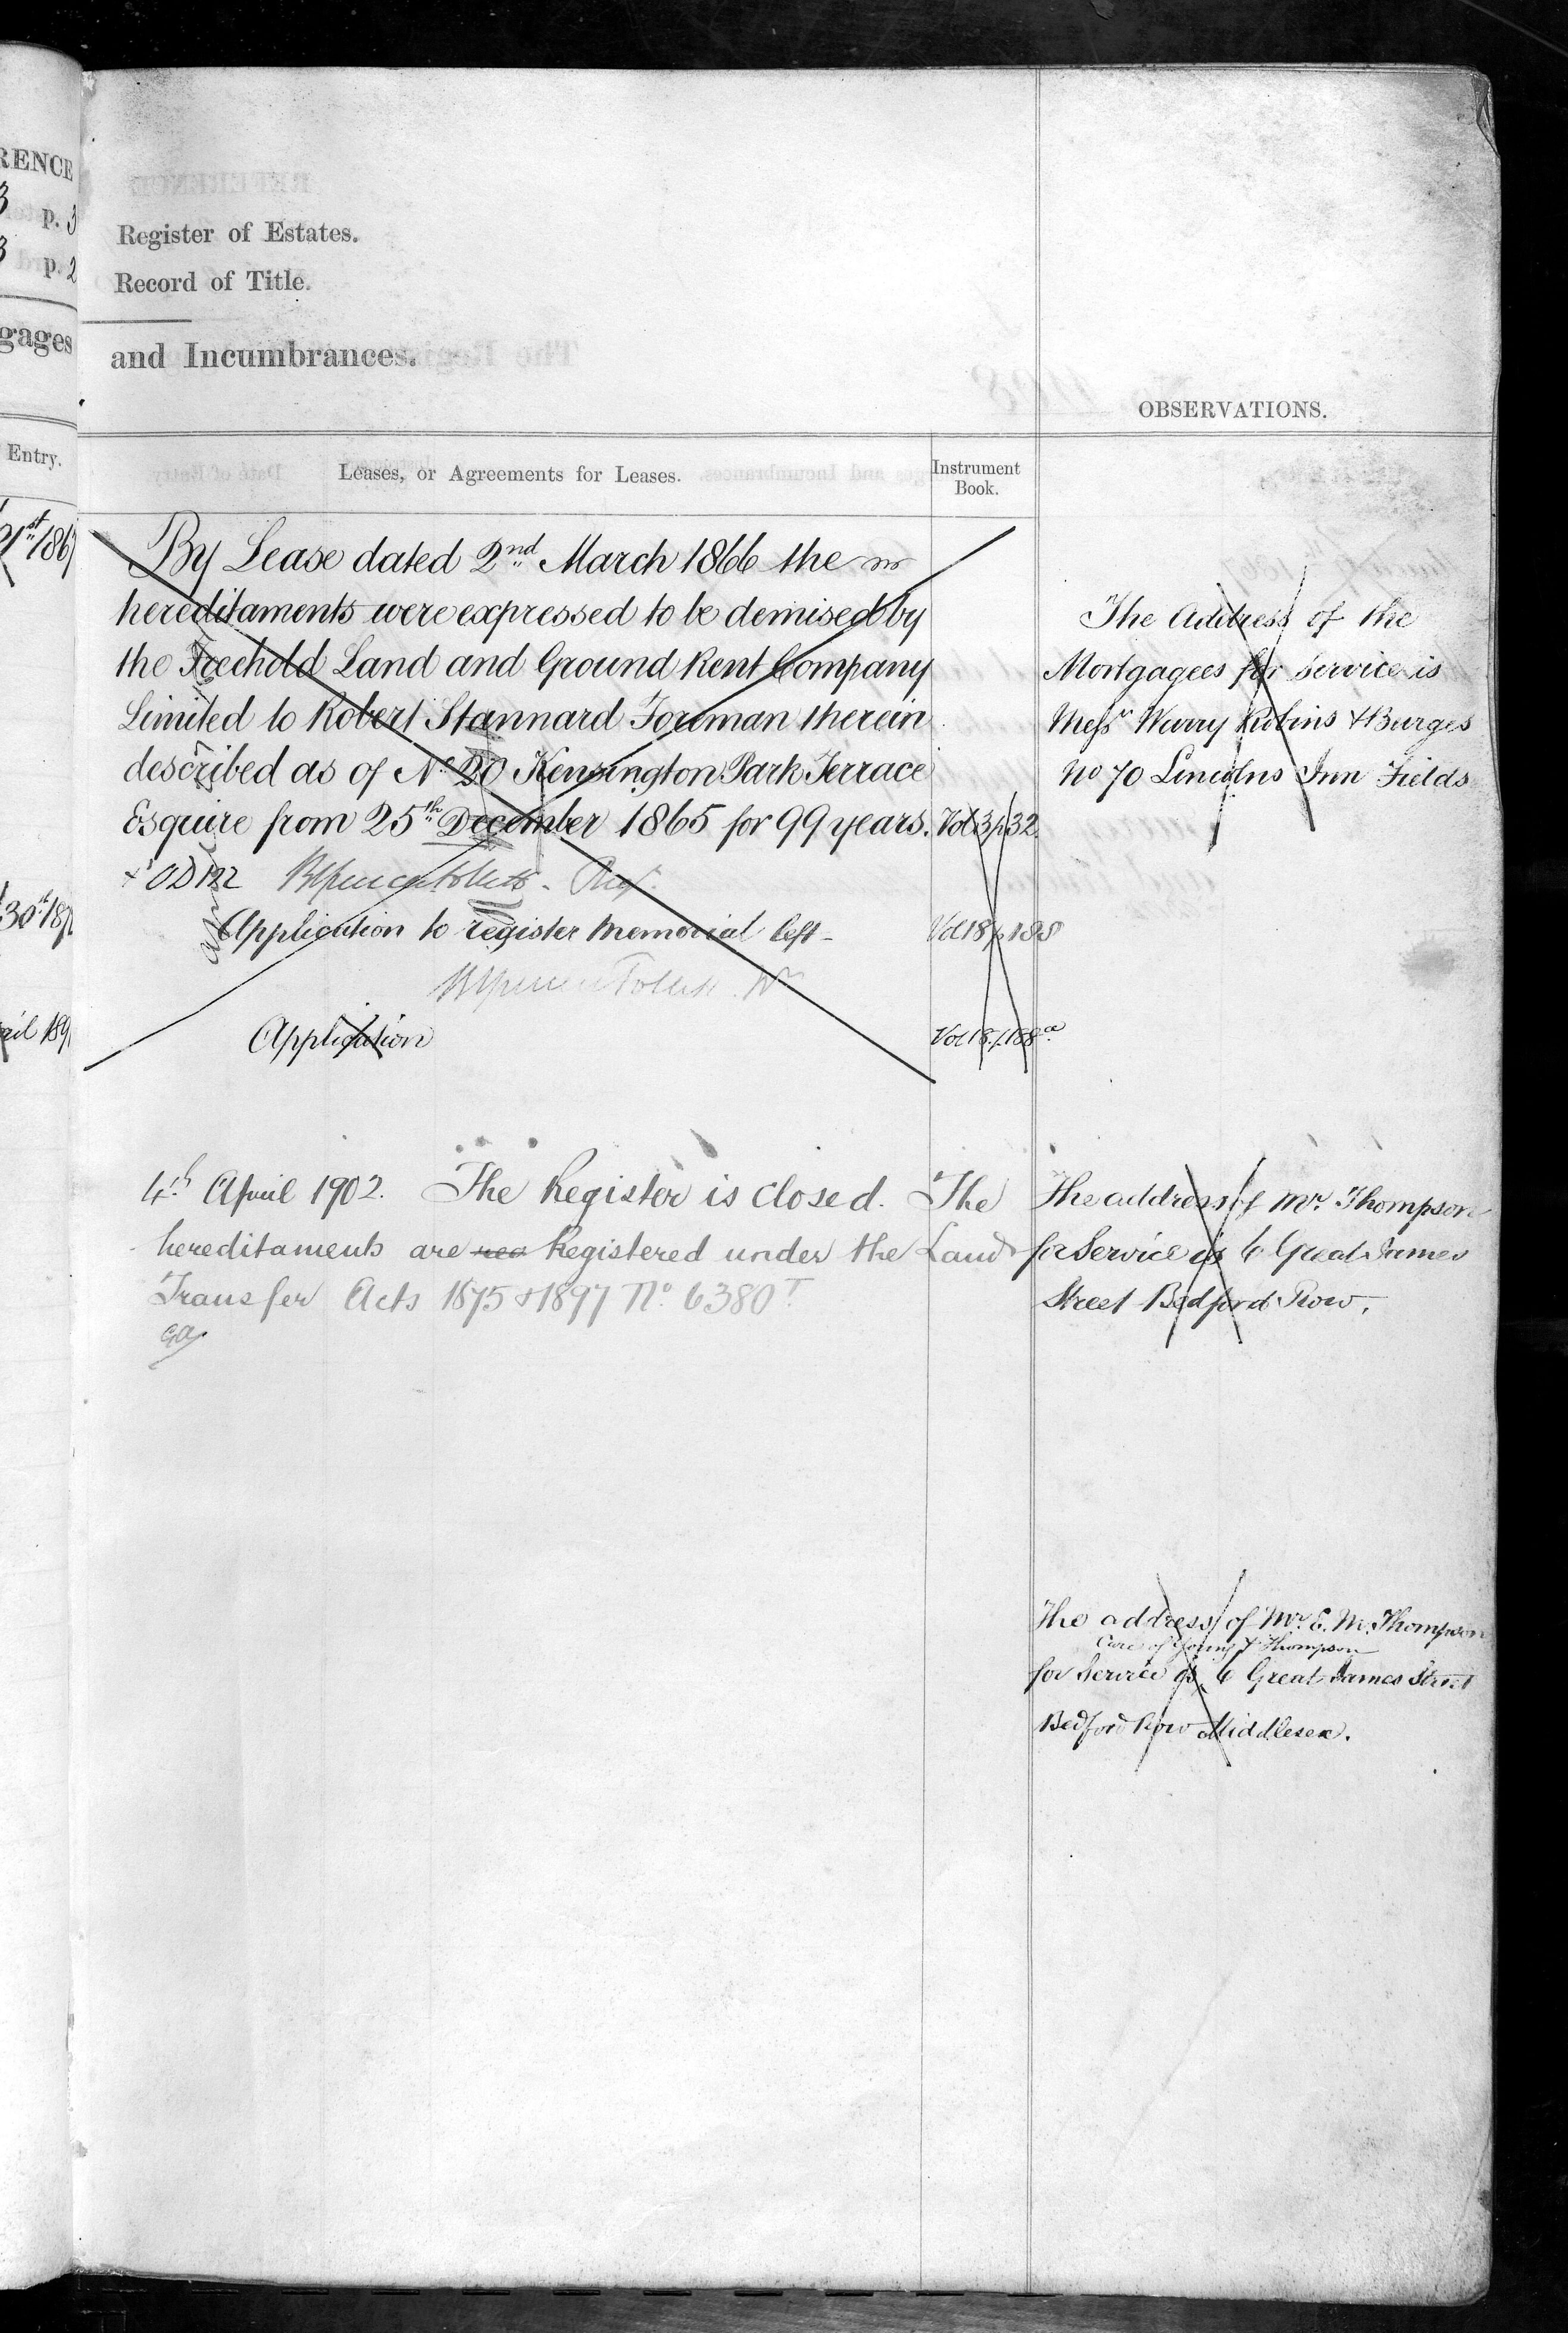 RENCE
p. 3
p. 2
gages
Entry.
Register of Estates.
Record of Title.
and Incumbrances.
OBSERVATIONS.
Leases, or Agreements for Leases.
Instrument
Book.
By Lease dated 2nd March 1866 the
hereditaments were expressed to be demised by
the Freehold Land and Ground Rent Company
Limited to Robert Stannard Foreman therein
described as of No 20 Kensington Park Terrace
Esquire from 25th December 1865 for 99 years. Vol 3 p 32
Application to register Memorial left - Vol 18 p 188
Application Vol 18 p. 188a
4th April 1902. The Register is closed. The
hereditaments are reg Registered under the Land
Transfer Acts 1875 & 1897 No. 6380T.
The Address of the
Mortgagees for Service is
Messrs Warry Robins & Burges
No 70 Lincolns Inn Fields
The address of Mr. Thompson
for Service is 6 Great James
Street Bedford Row.
The address of Mr. E. M. Thompson
Care of Young & Thompson
for Service is 6 Great James Street
Bedford Row Middlesex.